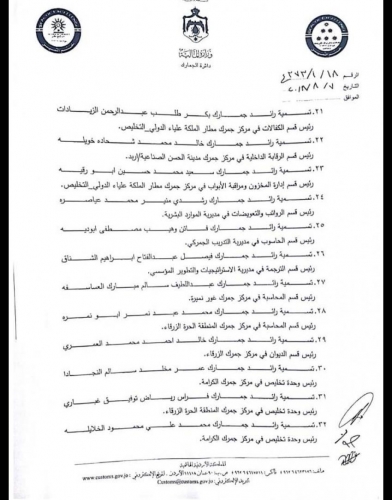 وزارة المالية
دائرة الجمارك
الرقم
التاريخ
الموافق
٢١. تسمية رائد جمارك بكر طلب عبدالرحمن الزيادات
رئيس قسم الكفالات في مركز جمرك مطار الملكة علياء الدولي_التخليص.
٢٢. تسمية رائد جمارك خالد محمد شحاده خويله
رئيس قسم الرقابة الداخلية في مركز جمرك مدينة الحسن الصناعية/اربد.
٢٣. تسمية رائد جمارك سعيد محمد حسين ابو رقيه
رئيس قسم إدارة المخزون ومراقبة الأبواب في مركز جمرك مطار الملكة علياء الدولي_التخليص.
٢٤. تسمية رائد جمارك رشدي منير محمد عياصره
رئيس قسم الرواتب والتعويضات في مديرية الموارد البشرية.
٢٥. تسمية رائد جمارك فاتن وهيب مصطفى ابوديه
رئيس قسم الحاسوب في مديرية التدريب الجمركي.
٢٦. تسمية رائد جمارك فيصل عبدالفتاح ابراهيم الشناق
رئيس قسم الترجمة في مديرية الاستراتيجيات والتطوير المؤسسي.
٢٧. تسمية رائد جمارك عبداللطيف سالم مبارك العساسفه
رئيس قسم المحاسبة في مركز جمرك غور نميرة.
٢٨. تسمية رائد جمارك محمد عيد نمر ابو نمره
رئيس قسم المحاسبة في مركز جمرك المنطقة الحرة الزرقاء.
٢٩. تسمية رائد جمارك خالد احمد محمد العمري
رئيس قسم الديوان في مركز جمرك الزرقاء.
٣٠. تسمية رائد جمارك عمر مخلد سالم النجادا
رئيس وحدة تخليص في مركز جمرك الكرامة.
٣١. تسمية رائد جمارك فراس رياض توفيق غباري
رئيس وحدة تخليص في مركز جمرك المنطقة الحرة الزرقاء.
٣٢. تسمية رائد جمارك محمد علي محمود الخلايله
رئيس وحدة تخليص في مركز جمرك الكرامة.
المملكة الأردنية الهاشمية
الموقع الإلكتروني: www.customs.gov.jo
البريد الإلكتروني: Customs@customs.gov.jo